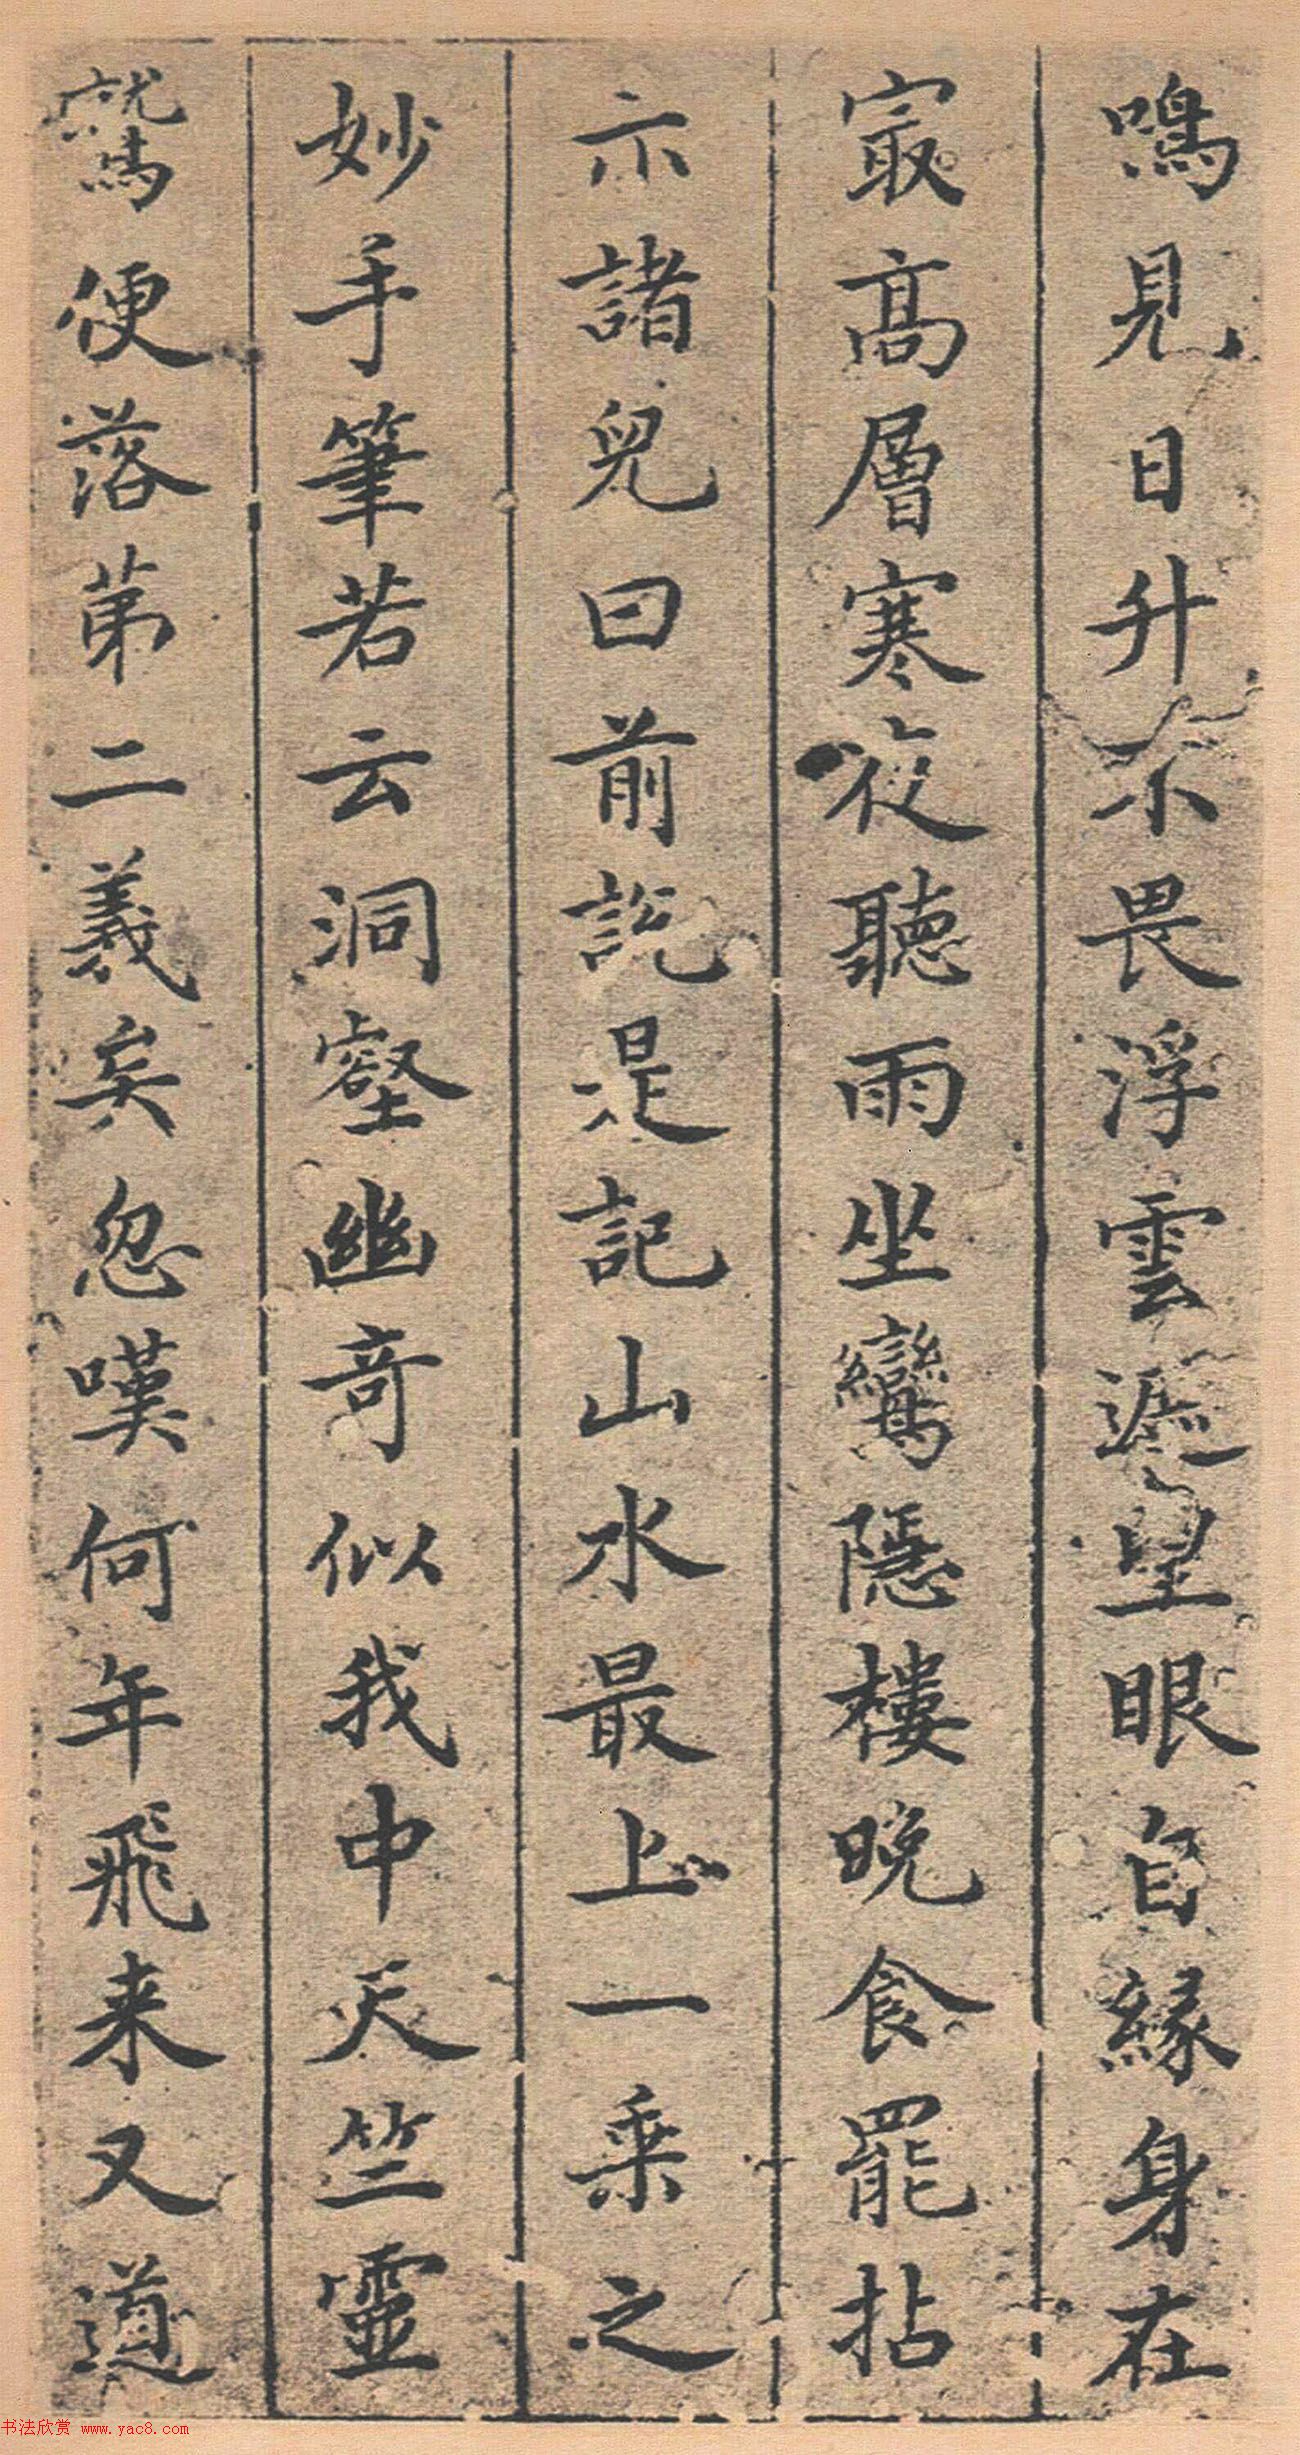 鳴見日升不畏浮雲遮望眼自緣身在
冣高層寒夜聽雨坐鸞隱樓晚食罷拈
示諸兒曰前說是記山水最上一乘之
妙手筆若云洞壑幽奇似我中天竺靈
鷲便落苐二義矣忽嘆何年飛来又道
书法欣赏 www.yac8.com